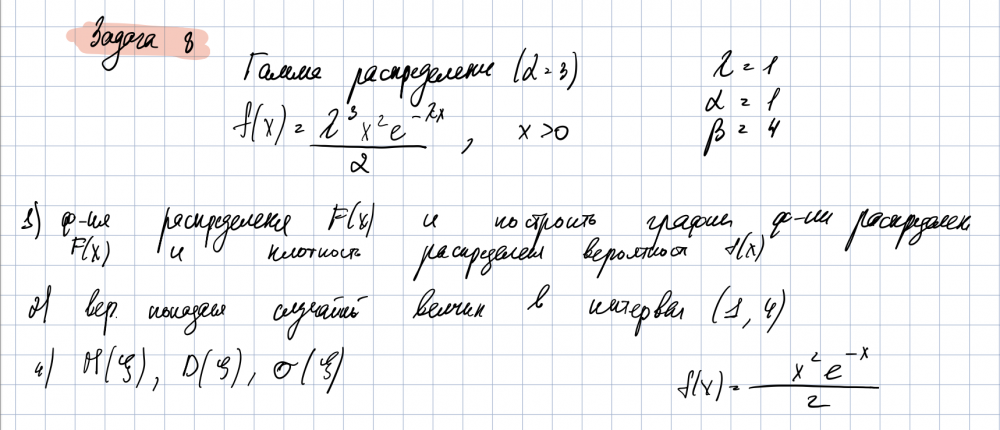 Задача 8
Гамма распределение (α = 3) λ = 1
f(x) = λ³x²e^(-λx) / 2, x > 0 α = 1
β = 4
1) ф-ия распределения F(x) и построить графики ф-ии распределен
F(x) и плотность распределен вероятност f(x)
2) вер. попадан случайн величин в интервал (1, 4)
4) M(ξ), D(ξ), σ(ξ)
f(x) = x²e^(-x) / 2